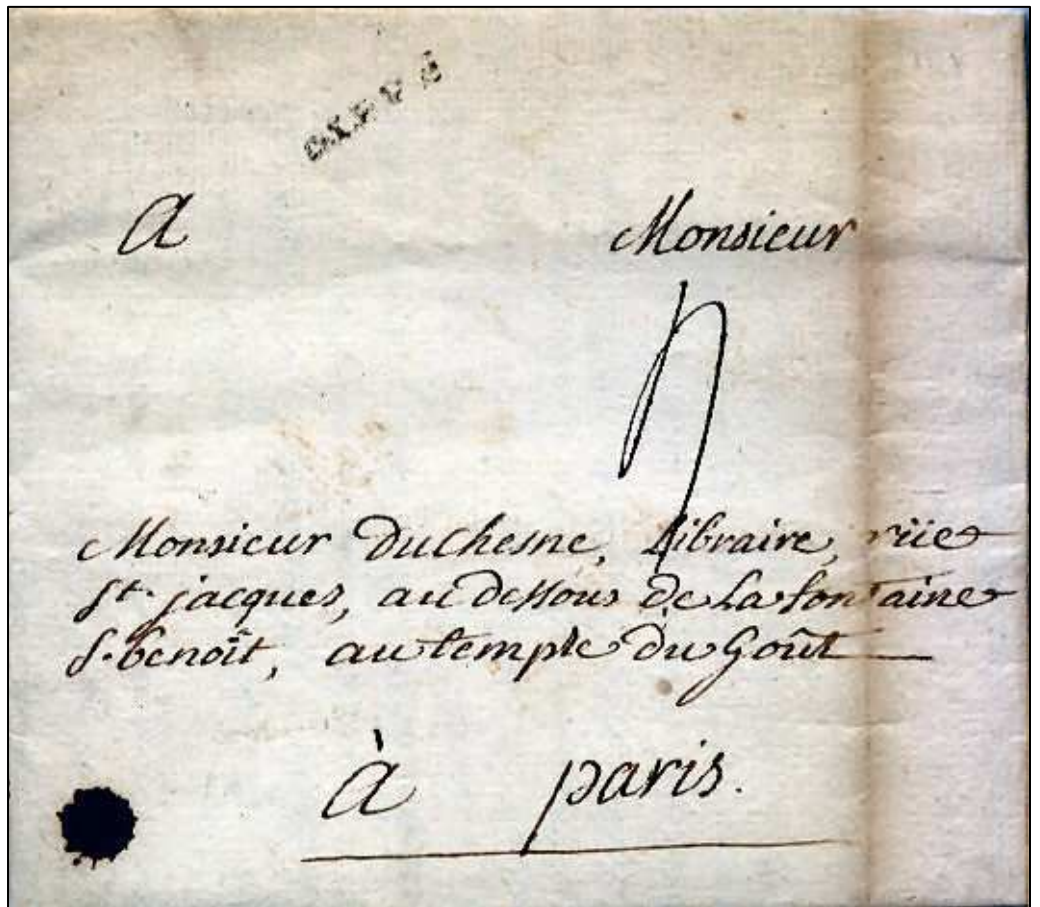 A Monsieur
Monsieur Duchesne, Libraire, rüe
St. jacques, au dessous de La fontaine
S. benoît, au temple du Goût
à paris.